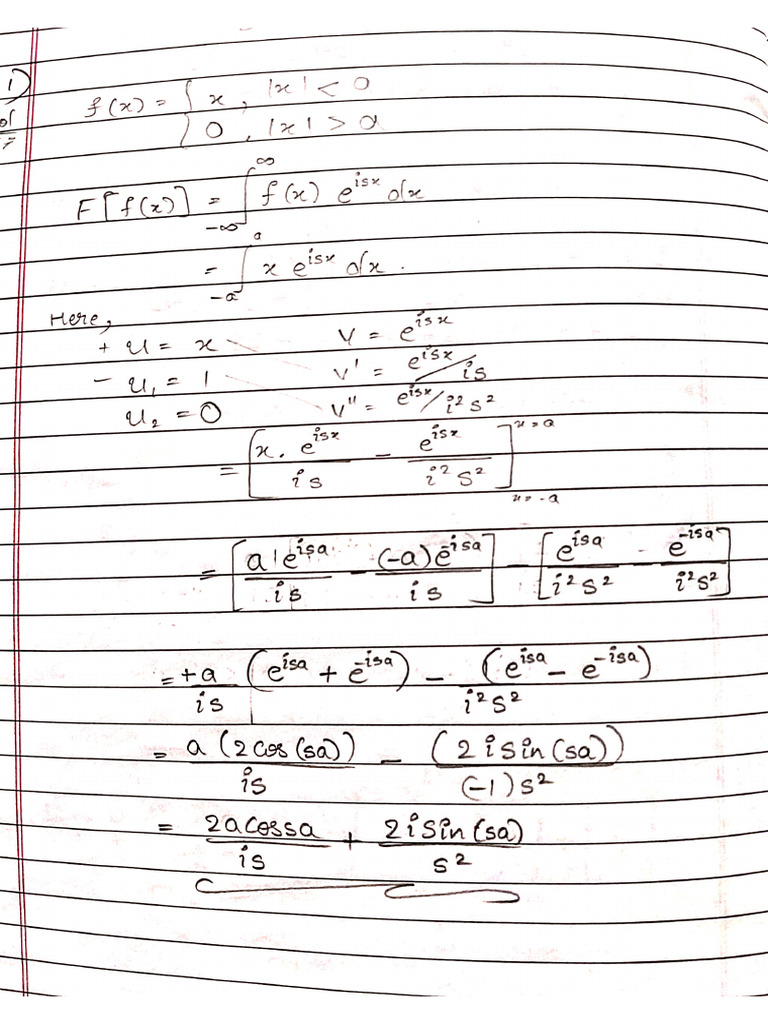 1)
f(x) = { x , |x| < 0
{ 0 , |x| > a
F[f(x)] = ∫_{-∞}^{∞} f(x) e^{isx} dx
= ∫_{-a}^{a} x e^{isx} dx .
Here,
+ u = x    v = e^{isx}
- u₁ = 1    v' = e^{isx}/is
u₂ = 0    v'' = e^{isx}/i²s²
= [x. e^{isx}/is - e^{isx}/i²s²]_{x=-a}^{x=a}
= [a e^{isa}/is - (-a)e^{-isa}/is] - [e^{isa}/i²s² - e^{-isa}/i²s²]
= +a/is (e^{isa} + e^{-isa}) - (e^{isa} - e^{-isa})/i²s²
= a(2cos(sa))/is - (2isin(sa))/(-1)s²
= 2acossa/is + 2isin(sa)/s²